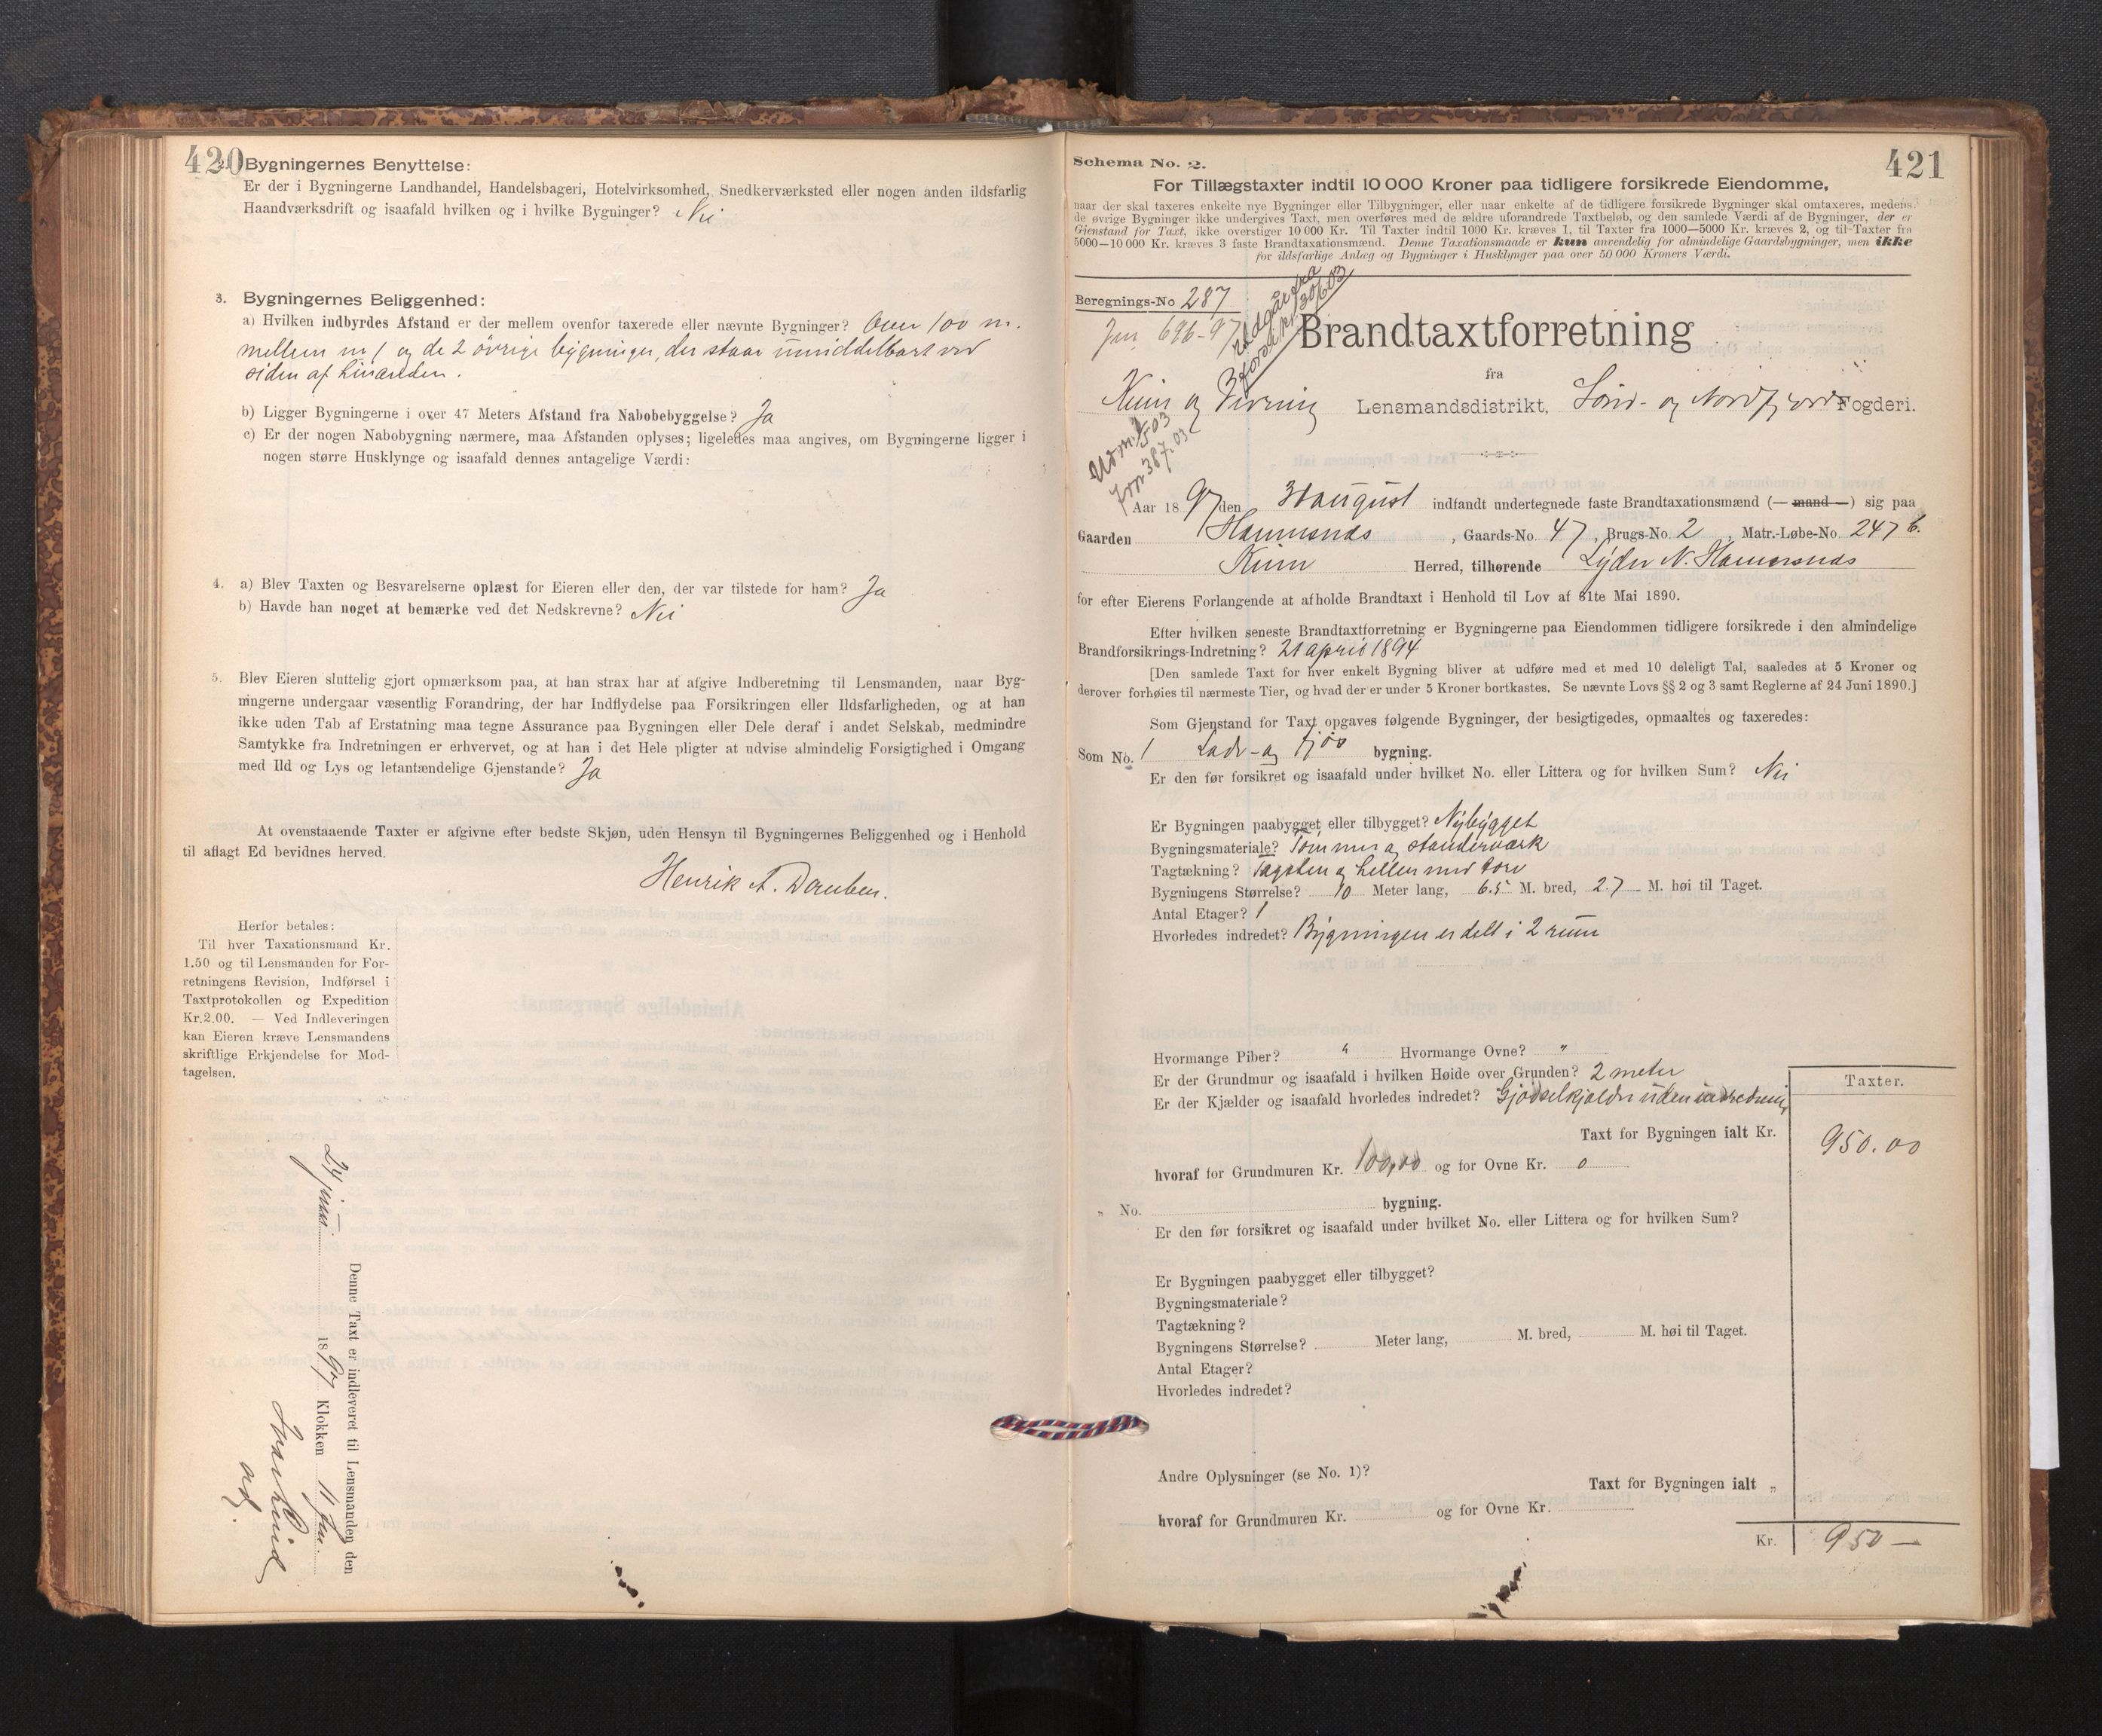 420
2. Bygningernes Benyttelse:
Er der i Bygningerne Landhandel, Handelsbageri, Hotelvirksomhed, Snedkerværksted eller nogen anden ildsfarlig
Haandværksdrift og isaafald hvilken og i hvilke Bygninger? Nei
3. Bygningernes Beliggenhed:
a) Hvilken indbyrdes Afstand er der mellem ovenfor taxerede eller nævnte Bygninger? Over 100 m.
mellem nr 1 og de 2 övrige bygninger, der staar umiddelbart ved
siden af hinanden.
b) Ligger Bygningerne i over 47 Meters Afstand fra Nabobebyggelse? Ja
c) Er der nogen Nabobygning nærmere, maa Afstanden oplyses; ligeledes maa angives, om Bygningerne ligger i
nogen større Husklynge og isaafald dennes antagelige Værdi:
4. a) Blev Taxten og Besvarelserne oplæst for Eieren eller den, der var tilstede for ham? Ja
b) Havde han noget at bemærke ved det Nedskrevne? Nei
5. Blev Eieren sluttelig gjort opmærksom paa, at han strax har at afgive Indberetning til Lensmanden, naar Byg-
ningerne undergaar væsentlig Forandring, der har Indflydelse paa Forsikringen eller Ildsfarligheden, og at han
ikke uden Tab af Erstatning maa tegne Assurance paa Bygningen eller Dele deraf i andet Selskab, medmindre
Samtykke fra Indretningen er erhvervet, og at han i det Hele pligter at udvise almindelig Forsigtighed i Omgang
med Ild og Lys og letantændelige Gjenstande? Ja
At ovenstaaende Taxter er afgivne efter bedste Skjøn, uden Hensyn til Bygningernes Beliggenhed og i Henhold
til aflagt Ed bevidnes herved.
Henrik A.
Herfor betales:
Til hver Taxationsmand Kr.
1.50 og til Lensmanden for For-
retningens Revision, Indførsel i
Taxtprotokollen og Expedition
Kr. 2.00. — Ved Indleveringen
kan Eieren kræve Lensmandens
skriftlige Erkjendelse for Mod-
tagelsen.
Denne Taxt er indleveret til Lensmanden den
1897 Klokken 11
421
Schema No. 2.
For Tillægstaxter indtil 10 000 Kroner paa tidligere forsikrede Eiendomme,
naar der skal taxeres enkelte nye Bygninger eller Tilbygninger, eller naar enkelte af de tidligere forsikrede Bygninger skal omtaxeres, medens
de øvrige Bygninger ikke undergives Taxt, men overføres med de ældre uforandrede Taxtbeløb, og den samlede Værdi af de Bygninger, der er
Gjenstand for Taxt, ikke overstiger 10 000 Kr. Til Taxter indtil 1000 Kr. kræves 1, til Taxter fra 1000—5000 Kr. kræves 2, og til Taxter fra
5000—10 000 Kr. kræves 3 faste Brandtaxationsmænd. Denne Taxationsmaade er kun anvendelig for almindelige Gaardsbygninger, men ikke
for ildsfarlige Anlæg og Bygninger i Husklynger paa over 50 000 Kroners Værdi.
Beregnings-No 287
Jnr 696-97
Udgår fra
Brandtaxtforretning
fra
Kinn og Vevring Lensmandsdistrikt, Sönd- og Nordfjords Fogderi.
Aar 1897 den 3 august indfandt undertegnede faste Brandtaxationsmænd (— mand —) sig paa
Gaarden Hammsnæs, Gaards-No. 47, Brugs-No. 2, Matr.-Løbe-No. 247 b.
Kinn Herred, tilhørende Lyder N. Hamersnæs
for efter Eierens Forlangende at afholde Brandtaxt i Henhold til Lov af 31te Mai 1890.
Efter hvilken seneste Brandtaxtforretning er Bygningerne paa Eiendommen tidligere forsikrede i den almindelige
Brandforsikrings-Indretning? 21 april 1894
[Den samlede Taxt for hver enkelt Bygning bliver at udføre med et med 10 deleligt Tal, saaledes at 5 Kroner og
derover forhøies til nærmeste Tier, og hvad der er under 5 Kroner bortkastes. Se nævnte Lovs §§ 2 og 3 samt Reglerne af 24 Juni 1890.]
Som Gjenstand for Taxt opgaves følgende Bygninger, der besigtigedes, opmaaltes og taxeredes:
Som No. 1 Lade- og Fjös bygning.
Er den før forsikret og isaafald under hvilket No. eller Littera og for hvilken Sum? Nei
Er Bygningen paabygget eller tilbygget? Nybygget
Bygningsmateriale? Tömmer og standerværk
Tagtækning? Tagsten og heller med torv
Bygningens Størrelse? 10 Meter lang, 6.5 M. bred, 2.7 M. høi til Taget.
Antal Etager? 1
Hvorledes indredet? Bygningen er delt i 2 rum
Hvormange Piber? " Hvormange Ovne? "
Er der Grundmur og isaafald i hvilken Høide over Grunden? 2 meter
Er der Kjælder og isaafald hvorledes indredet? Gjödselkjelder uden indredning
Taxter.
Taxt for Bygningen ialt Kr. 950.00
hvoraf for Grundmuren Kr. 100,00 og for Ovne Kr. 0
„ No. bygning.
Er den før forsikret og isaafald under hvilket No. eller Littera og for hvilken Sum?
Er Bygningen paabygget eller tilbygget?
Bygningsmateriale?
Tagtækning?
Bygningens Størrelse? Meter lang, M. bred, M. høi til Taget.
Antal Etager?
Hvorledes indredet?
Andre Oplysninger (se No. 1)?
Taxt for Bygningen ialt „
hvoraf for Grundmuren Kr. og for Ovne Kr.
Kr. 950 —